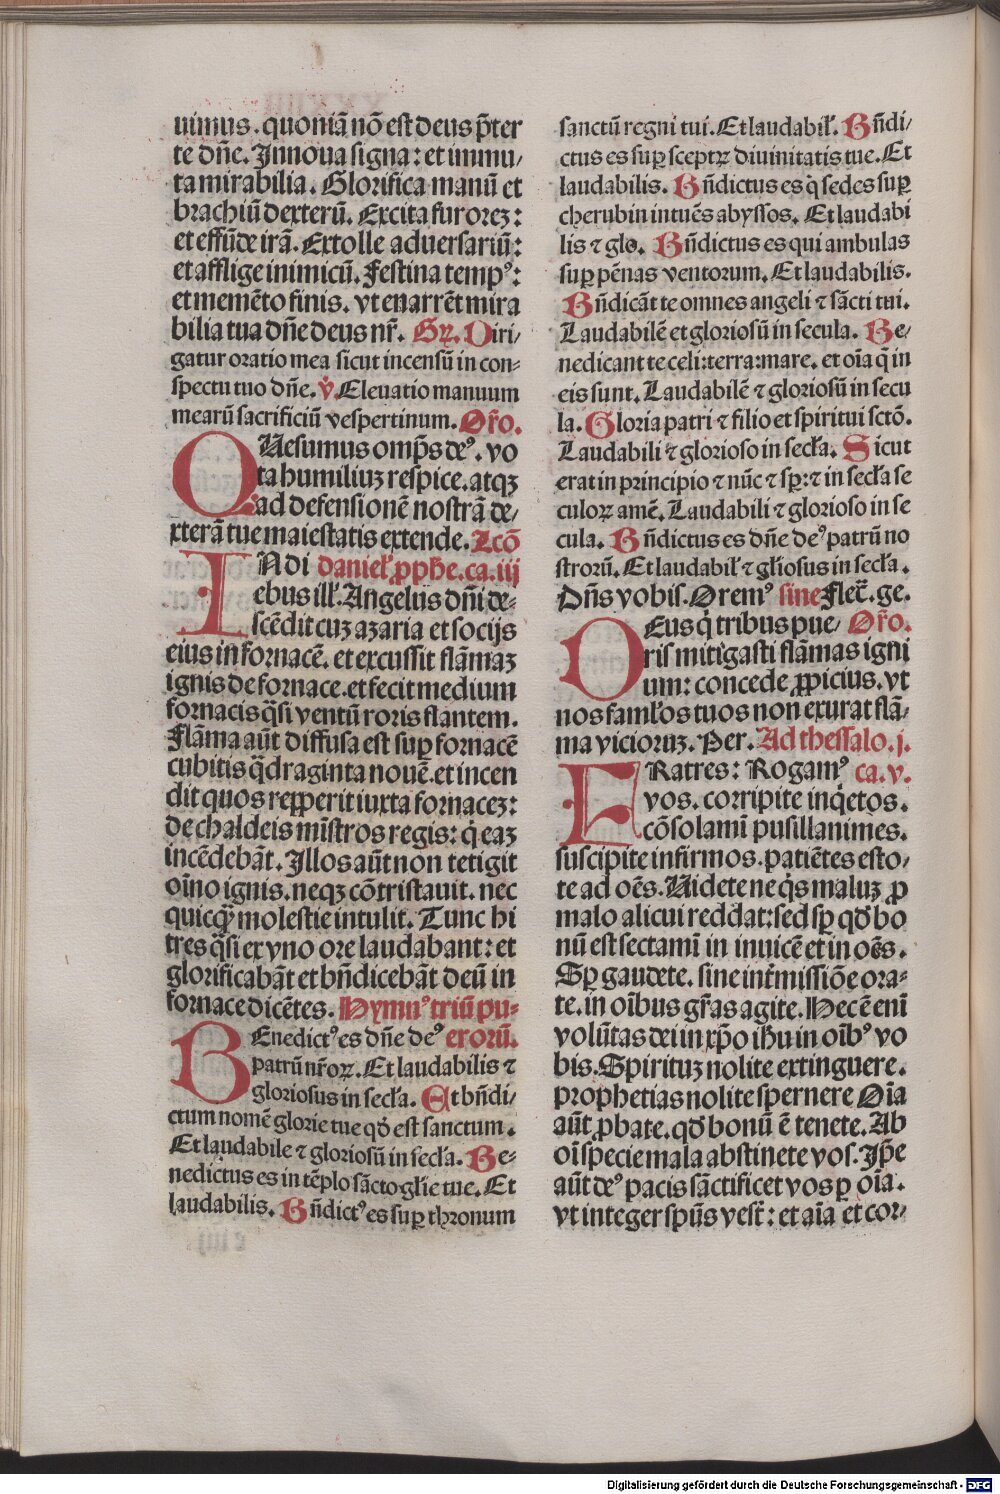 uimus. quoniã nõ est deus p̄ter
te dñe. Innoua signa: et immu/
ta mirabilia. Glorifica manũ et
brachiũ dexterũ. Excita furoreꝫ:
et effũde irã. Extolle aduersariũ:
et afflige inimicũ. Festina tempꝰ:
et memẽto finis. vt enarrẽt mira
bilia tua dñe deus nr̃. Gꝝ. Diri/
gatur oratio mea sicut incensũ in con-
spectu tuo dñe. v̓. Eleuatio manuum
mearũ sacrificiũ vespertinum. Or̃o.
QUesumus omp̃s deꝰ. vo
ta humiliuꝫ respice. atqꝫ
ad defensionẽ nostrã de/
xterã tue maiestatis extende. Lcõ
IN di danieł ꝓphe. ca. iij
ebus ill'. Angelus dñi de-
scẽdit cuꝫ azaria et socijs
eius in fornacẽ. et excussit flãmaꝫ
ignis de fornace. et fecit medium
fornacis q̃si ventũ roris flantem.
Flãma aũt diffusa est suꝑ fornacẽ
cubitis q̃draginta nouẽ. et incen
dit quos repꝑerit iuxta fornaceꝫ:
de chaldeis mĩstros regis: q̇ eaꝫ
incẽdebãt. Illos aũt non tetigit
oĩno ignis. neqꝫ cõtristauit. nec
quicq̃ molestie intulit. Tunc hi
tres q̃si ex vno ore laudabant: et
glorificabãt et bñdicebãt deũ in
fornace dicẽtes. Hymnꝰ triũ pu-
BEnedictꝰ es dñe deꝰ erorũ.
patrũ nr̃oꝝ. Et laudabilis ⁊
gloriosus in secła. Et bñdi/
ctum nomẽ glorie tue qđ est sanctum.
Et laudabile ⁊ gloriosũ in secła. Be-
nedictus es in tẽplo sãcto gl̃ie tue. Et
laudabilis. Bñdictꝰ es suꝑ thronum
sanctũ regni tui. Et laudabił. Bñdi/
ctus es suꝑ sceptꝝ diuinitatis tue. Et
laudabilis. Bñdictus es q̇ sedes suꝑ
cherubin intuẽs abyssos. Et laudabi
lis ⁊ glo. Bñdictus es qui ambulas
suꝑ pẽnas ventorum. Et laudabilis.
Bñdicãt te omnes angeli ⁊ sãcti tui.
Laudabilẽ et gloriosũ in secula. Be-
nedicant te celi: terra: mare. et oĩa q̃ in
eis sunt. Laudabilẽ ⁊ gloriosũ in secu
la. Gloria patri ⁊ filio et spiritui sctõ.
Laudabili ⁊ glorioso in secła. Sicut
erat in principio ⁊ nũc ⁊ sꝑ: ⁊ in secła se
culoꝝ amẽ. Laudabili ⁊ glorioso in se
cula. Bñdictus es dñe deꝰ patrũ no
strorũ. Et laudabił ⁊ gl̃iosus in secła.
Dñs vobis. Oremꝰ sine Flec̃. ge.
DEus q̇ tribus pue/ Or̃o.
ris mitigasti flãmas igni
um: concede ꝓpicius. vt
nos famłos tuos non exurat flã/
ma vicioruꝫ. Per. Ad thessalo. j.
FRatres: Rogamꝰ ca. v.
vos. corripite inq̇etos.
cõsolamĩ pusillanimes.
suscipite infirmos. patiẽtes esto/
te ad oẽs. Uidete ne q̇s maluꝫ ꝓ
malo alicui reddat: sed sꝑ qđ bo
nũ est sectamĩ in inuicẽ et in oẽs.
Sꝑ gaudete. sine int̃missiõe ora-
te. in oĩbus gr̃as agite. Hec ẽ enĩ
volũtas dei in xp̃o ihũ in oĩbꝰ vo
bis. Spirituꝫ nolite extinguere.
prophetias nolite spernere Oĩa
aũt ꝓbate. qđ bonũ ẽ tenete. Ab
oĩ specie mala abstinete vos. Ip̃e
aũt deꝰ pacis sãctificet vos ꝑ oĩa.
vt integer spũs vest̃: et aĩa et cor/
Digitalisierung gefördert durch die Deutsche Forschungsgemeinschaft - DFG